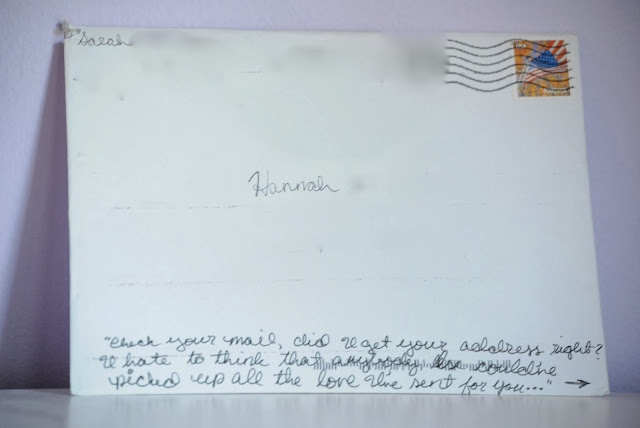 Sarah
Hannah
"Check your mail, did I get your address right?
I hate to think that anybody else could've
picked up all the love I've sent for you..." →